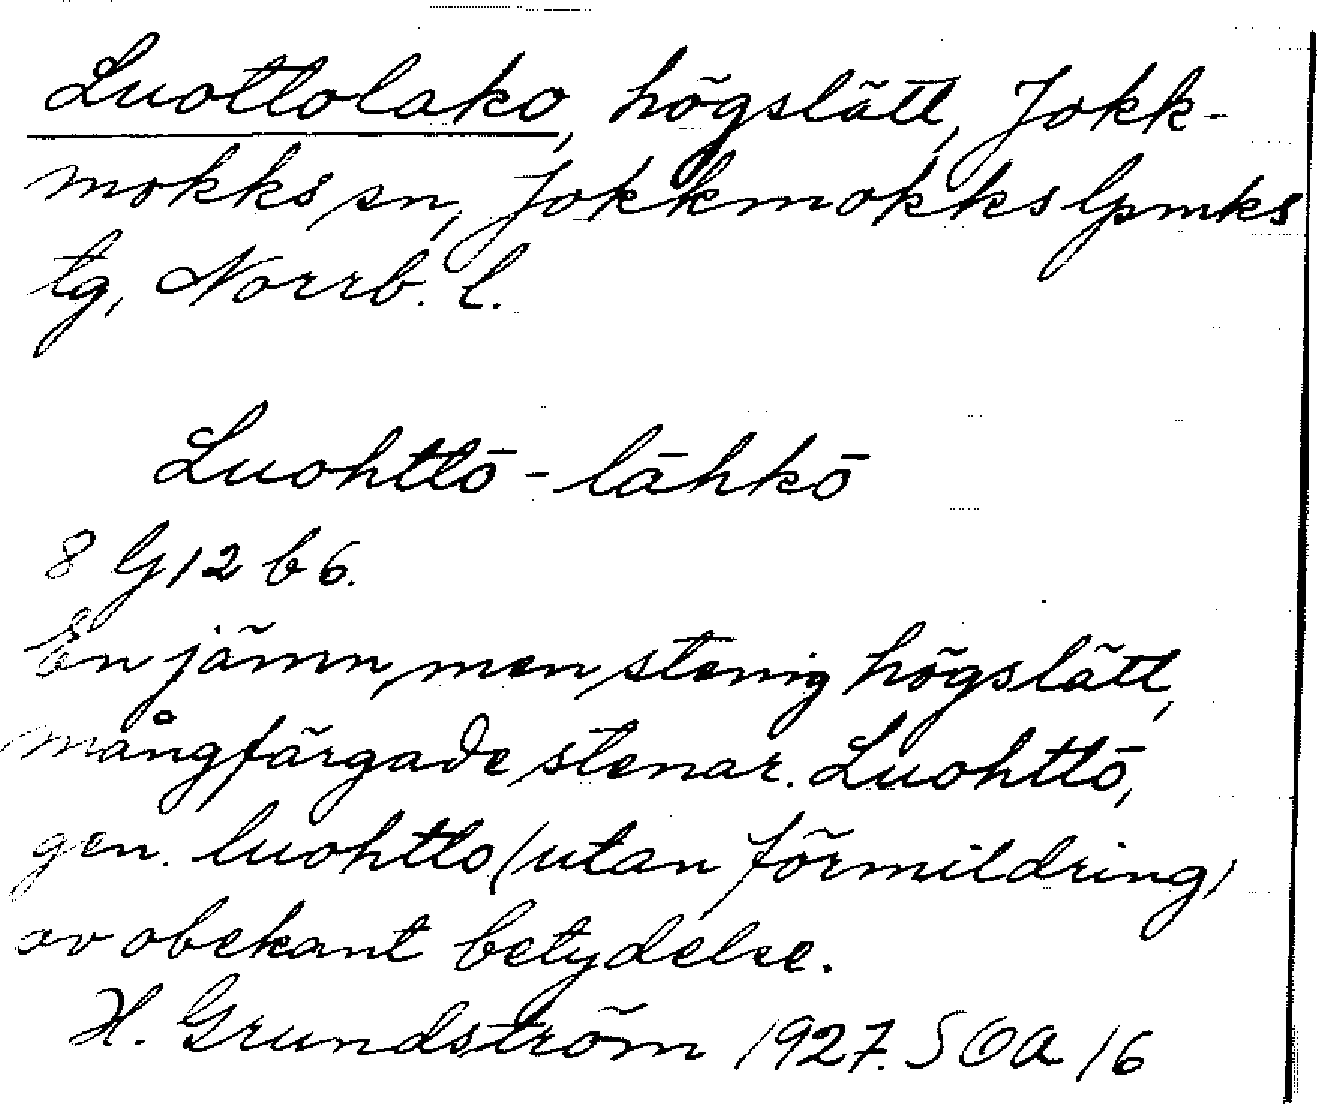 Luottolako, högslätt, Jokk-
mokks sn, Jokkmokks lpmks
tg, Norrb. l.
Luohttō - lāhkō
8 G 12 b 6.
En jämn, men stenig högslätt,
mångfärgade stenar. Luohttō,
gen. luohtto (utan förmildring)
av obekant betydelse.
H. Grundström 1927. SOA 16